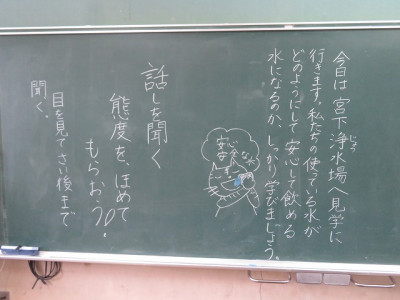 今日は宮下浄水場へ見学に
じょう
行きます。私たちの使っている水が
どのようにして安心して飲める
水になるのか しっかり学びましょう。
安心
安全
な水
話しを聞く
態度を、ほめて
もらおう!
目を見てさい後まで
聞く。